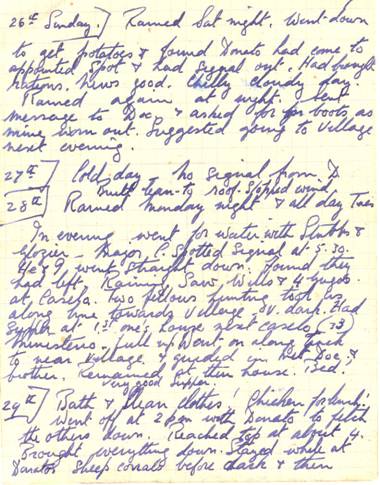 26th Sunday.] Rained Sat night. Went down
to get potatoes & found Donato had come to
appointed spot & had signal out. Had brought
rations. News good. Chilly cloudy day.
Rained again at night. Sent
message to Doc & asked for boots as
mine worn out. Suggested going to village
next evening.
27th] Cold day. No signal from D
Built lean-to roof. Stopped wind
28th] Rained Monday night & all day Tues
In evening went for water with Stubbs &
Glozier - Major C. spotted signal at 5.30.
He & I went straight down. Found they
had left. Raining. Saw Willo &
at Caseta. Two fellows hunting took us
along towards village. V. dark. Had
at 1st one's house next caseta
Minesterio. full up. Went on along track
to near village & guided in. Met Doc &
brother. Remained at their house. Bed.
Very good supper.
29th] Bath & clean clothes! Chicken for lunch!
Went off at 2 pm with Donato to fetch
the others down. Reached top at about 4.
Brought everything down. Stayed while at
Donatos sheep corrals before dark & then